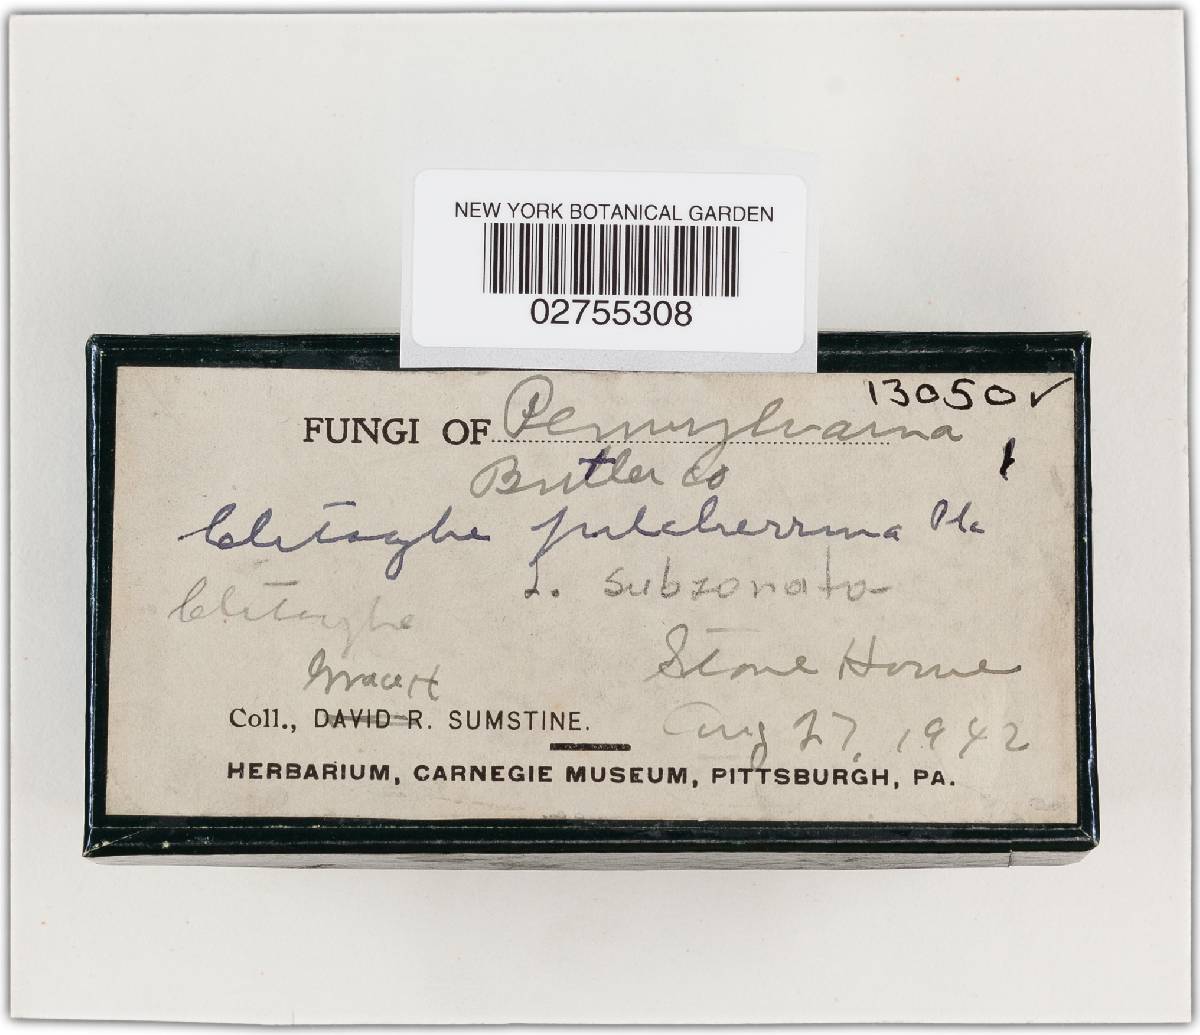 NEW YORK BOTANICAL GARDEN
02755308
13050 ✓
FUNGI OF Pennsylvania
Butler Co
Clitocybe pulcherrima Pk
L. subzonata
Clitocybe
Stone House
Grace H
Coll., DAVID R. SUMSTINE.
Aug 27, 1942
HERBARIUM, CARNEGIE MUSEUM, PITTSBURGH, PA.